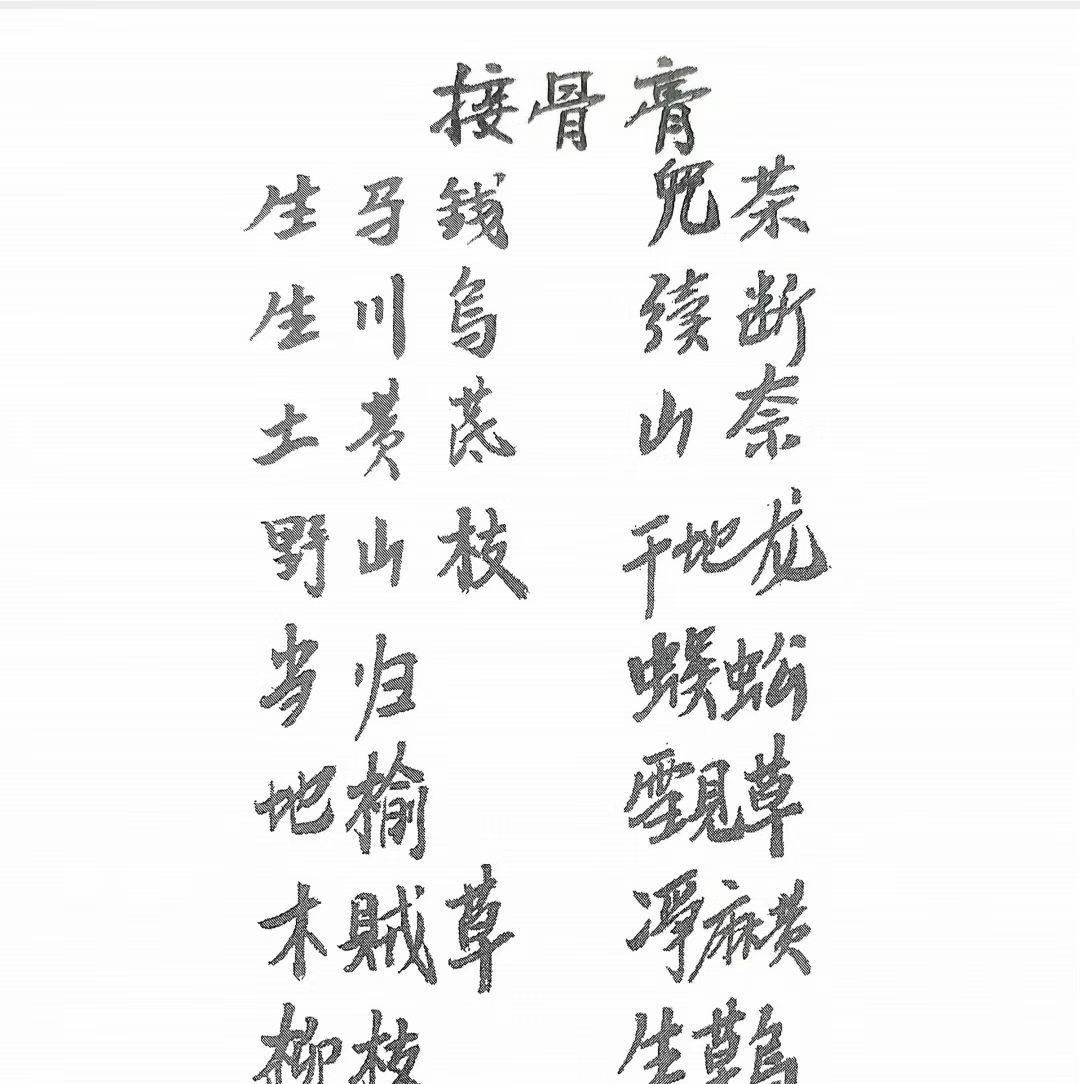 接骨膏
生马钱 兒茶
生川乌 續断
土黄芪 山奈
野山枝 干地龙
当归 蜈蚣
地榆 見草
木賊草 净麻黄
柳枝 生草乌